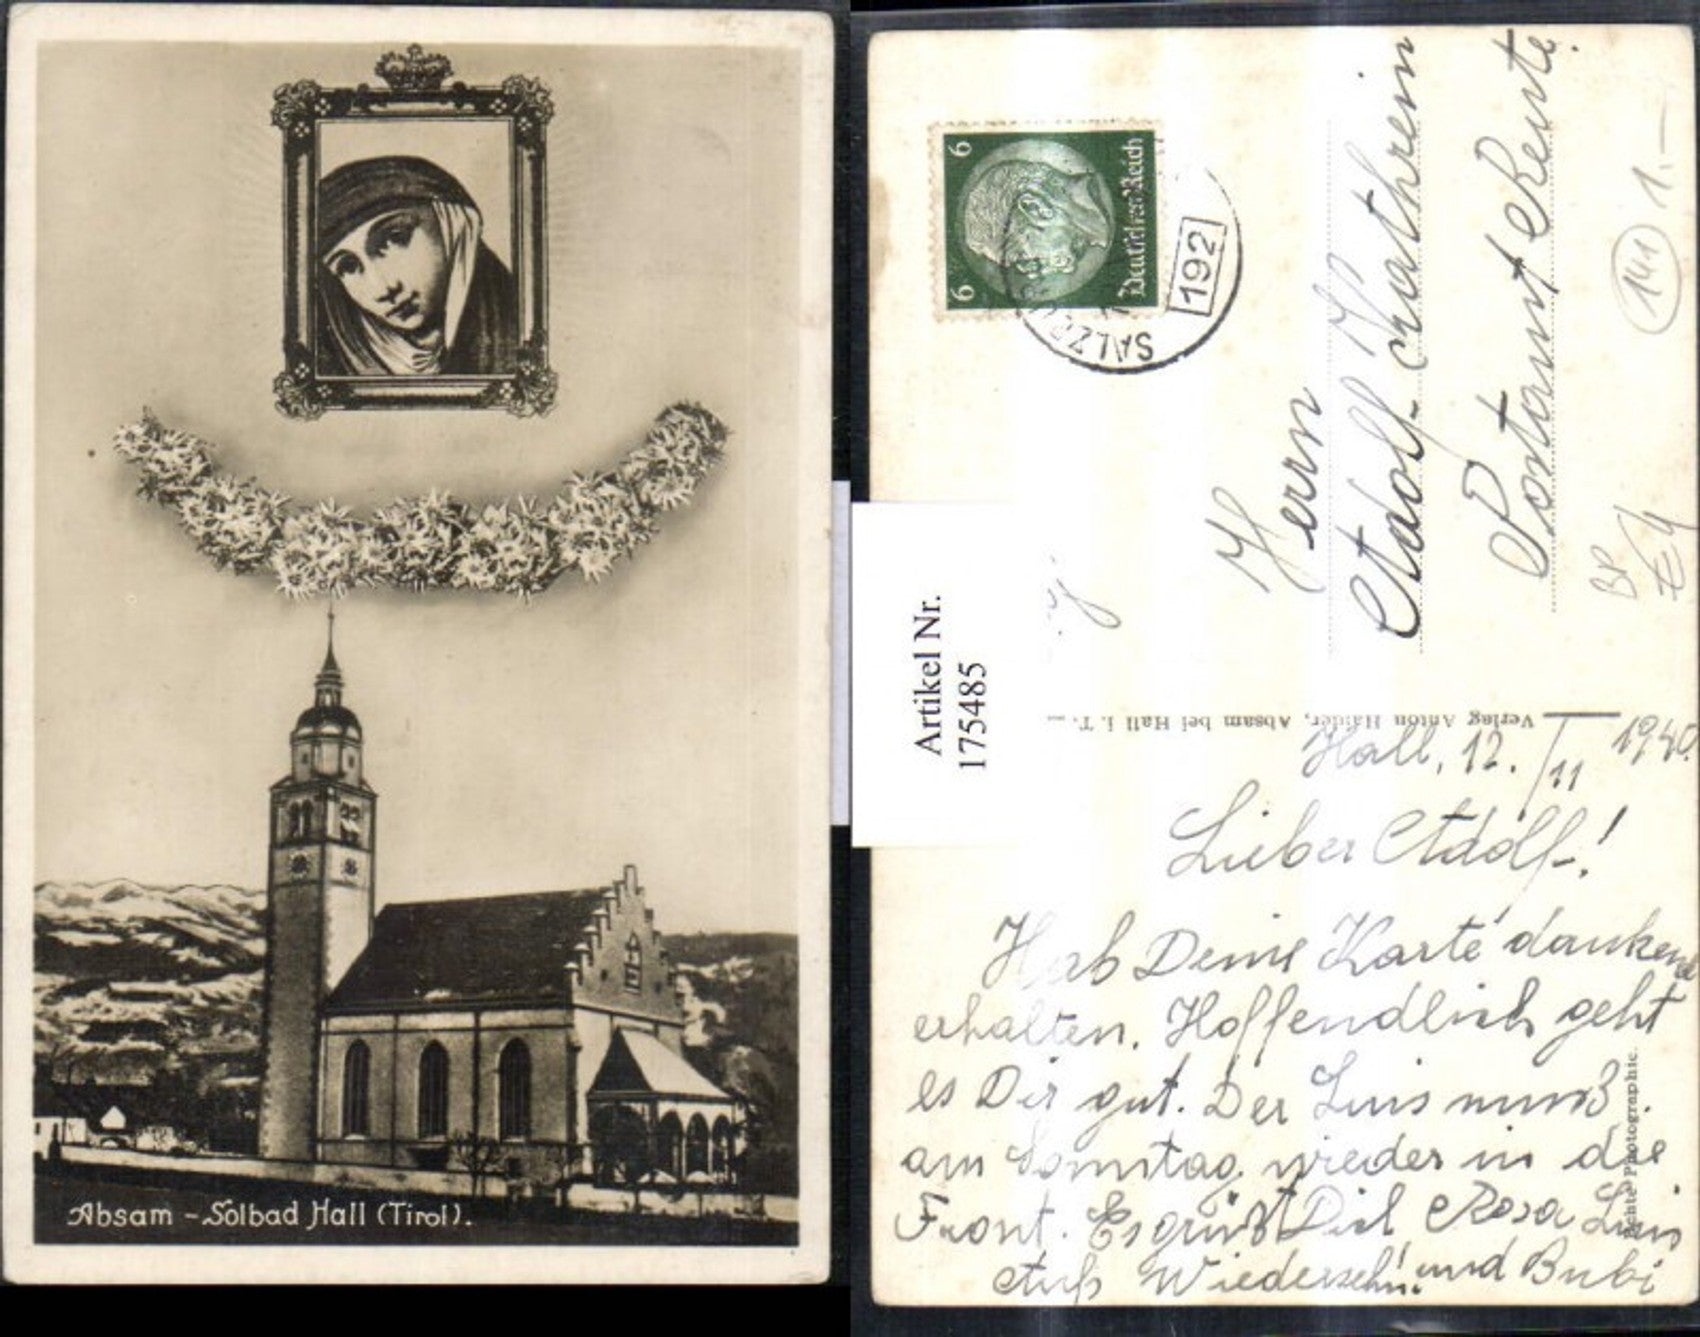 Absam – Solbad Hall (Tirol).
6
6
Deutsches Reich
SALZ
192
Herrn
Adolf Kathrein
Postamt Reute.
141
1.–
Artikel Nr.
175485
Verlag Anton Haider, Absam bei Hall i. T.
Echte Photographie.
Hall, 12./11 1940.
Lieber Adolf!
Hab Deine Karte dankend
erhalten. Hoffendlich geht
es Dir gut. Der Luis muß
am Sonntag wieder in die
Front. Es grüßt Dich Rosa Luis
Auf Wiedersehn! und Bubi